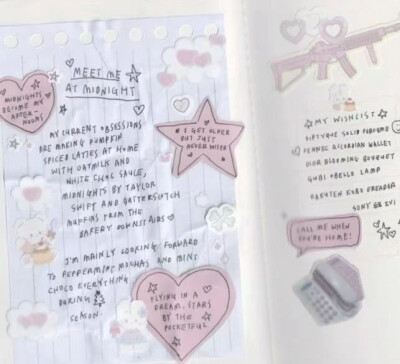 MEET ME
AT MIDNIGHT
MIDNIGHTS
BECOME MY
AFTER-
NOONS
# I GET OLDER
BUT JUST
NEVER WISER
MY CURRENT OBSESSIONS
ARE MAKING PUMPKIN
SPICED LATTES AT HOME
WITH OATMILK AND
WHITE CHOC SAUCE,
MIDNIGHTS BY TAYLOR
SWIFT AND BUTTERSCOTCH
MUFFINS FROM THE
BAKERY DOWNSTAIRS
I'M MAINLY LOOKING FORWARD
TO PEPPERMINT MOCHAS AND MINT
CHOCO EVERYTHING
DURING
SEASON.
FLYING IN A
DREAM, STARS
BY THE
POCKETFUL
MY WISHLIST
DIPTYQUE SOLID PERFUME
CHANEL ACCORDIAN WALLET
DIOR BLOOMING BOUQUET
GUBI OBELLO LAMP
RAKUTEN KOBO EREADER
SONY
CALL ME WHEN
YOU'RE HOME!